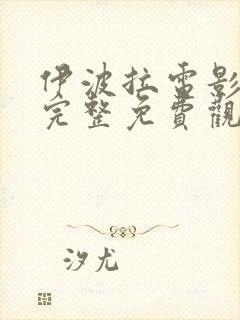 伊波拉雷影
完整免費觀
汐尤